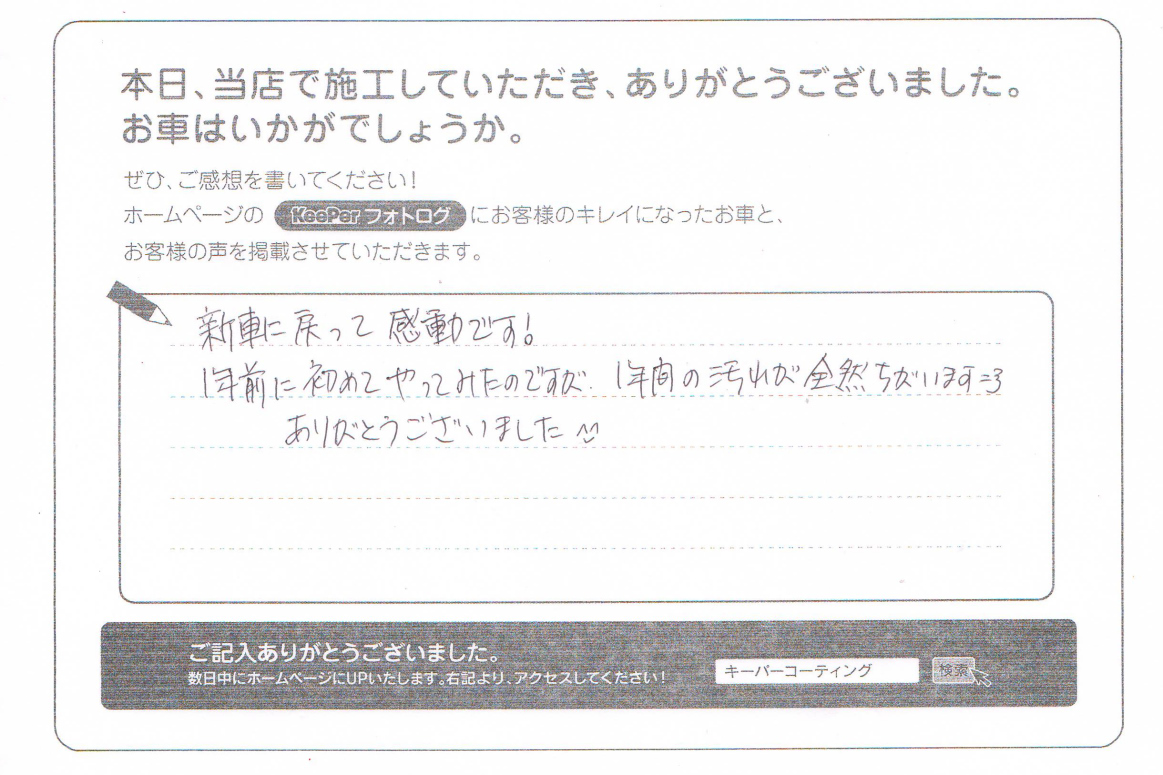 本日、当店で施工していただき、ありがとうございました。
お車はいかがでしょうか。
ぜひ、ご感想を書いてください!
ホームページの KeePer フォトログ にお客様のキレイになったお車と、
お客様の声を掲載させていただきます。
新車に戻って感動です!
1年前に初めてやってみたのですが、1年間の汚れが全然ちがいます
ありがとうございました
ご記入ありがとうございました。
数日中にホームページにUPいたします。右記より、アクセスしてください!
キーパーコーティング 検索